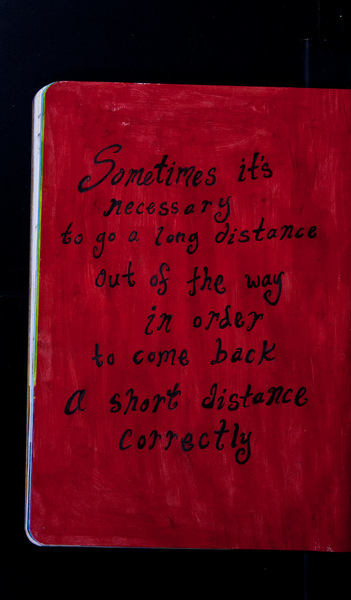 Sometimes it's
necessary
to go a long distance
out of the way
in order
to come back
a short distance
correctly